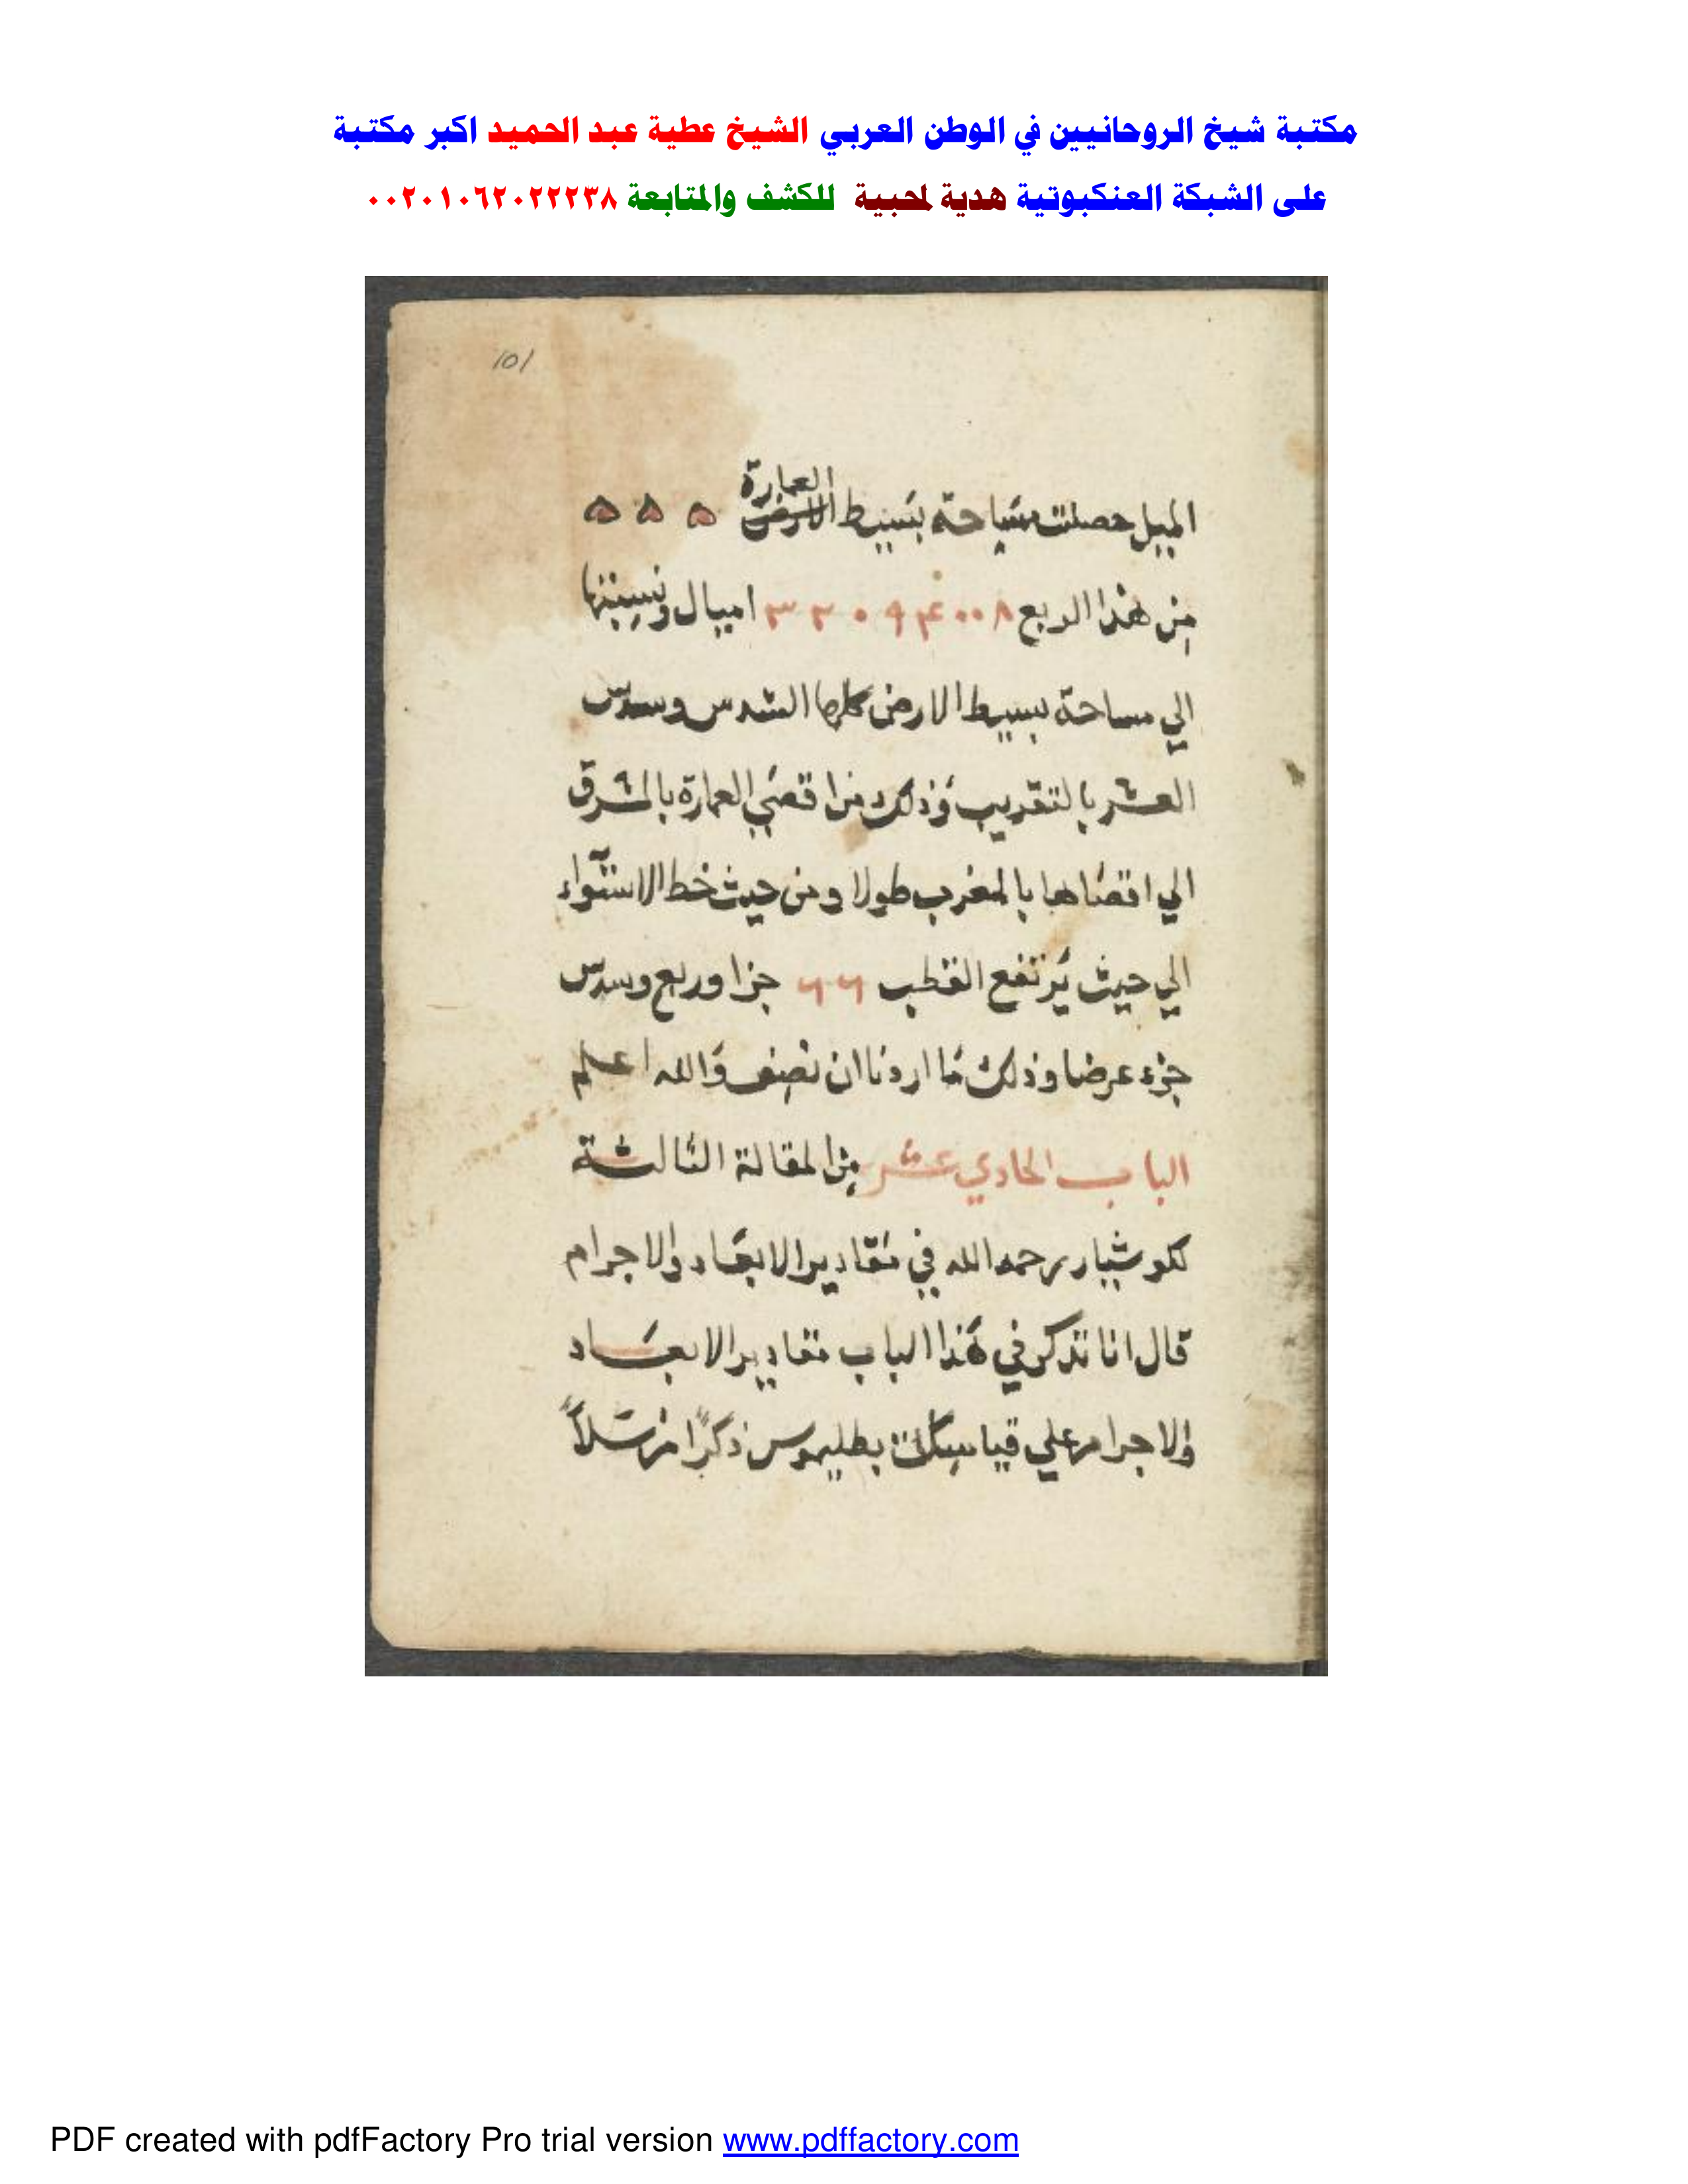 مكتبة شيخ الروحانيين في الوطن العربي الشيخ عطية عبد الحميد اكبر مكتبة
على الشبكة العنكبوتية هدية لمحبية للكشف والمتابعة ٠٠٢٠١٠٦٢٠٢٢٢٣٨
101
العمارة
الميل حصلت مساحة بسيط الارض ۵ ۵ ۵
من هذا الربع ٣٢٠٩۴٠٠٨ اميال ونسبتها
الي مساحة بسيط الارض كلها السدس وسدس
العشر بالتقريب وذلك من اقصي العمارة بالمشرق
الي اقصاها بالمغرب طولا ومن حيث خط الاستوآء
الي حيث يرتفع القطب ٦٦ جزا وربع وسدس
جزء عرضا وذلك ما اردنا ان نصف والله اعلم
الباب الحادي عشر من المقالة الثالثة
لكوشيار رحمه الله في مقادير الابعاد والاجرام
قال انا نذكر في هذا الباب مقادير الابعاد
والاجرام علي قياس بطليموس ذكرًا مرسلاً
PDF created with pdfFactory Pro trial version www.pdffactory.com